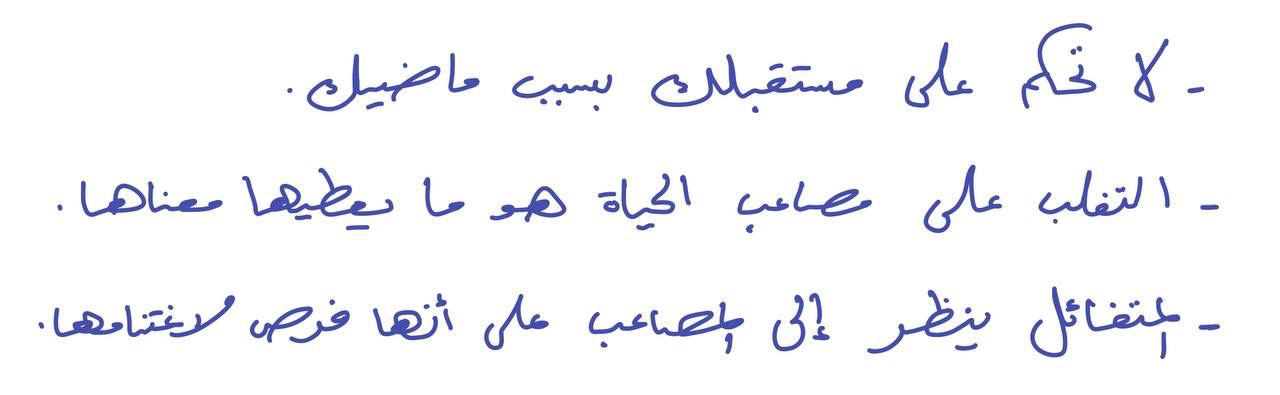 - لا تحكم على مستقبلك بسبب ماضيك.
- التغلب على مصاعب الحياة هو ما يعطيها معناها.
- المتفائل ينظر إلى المصاعب على أنها فرص لاغتنامها.